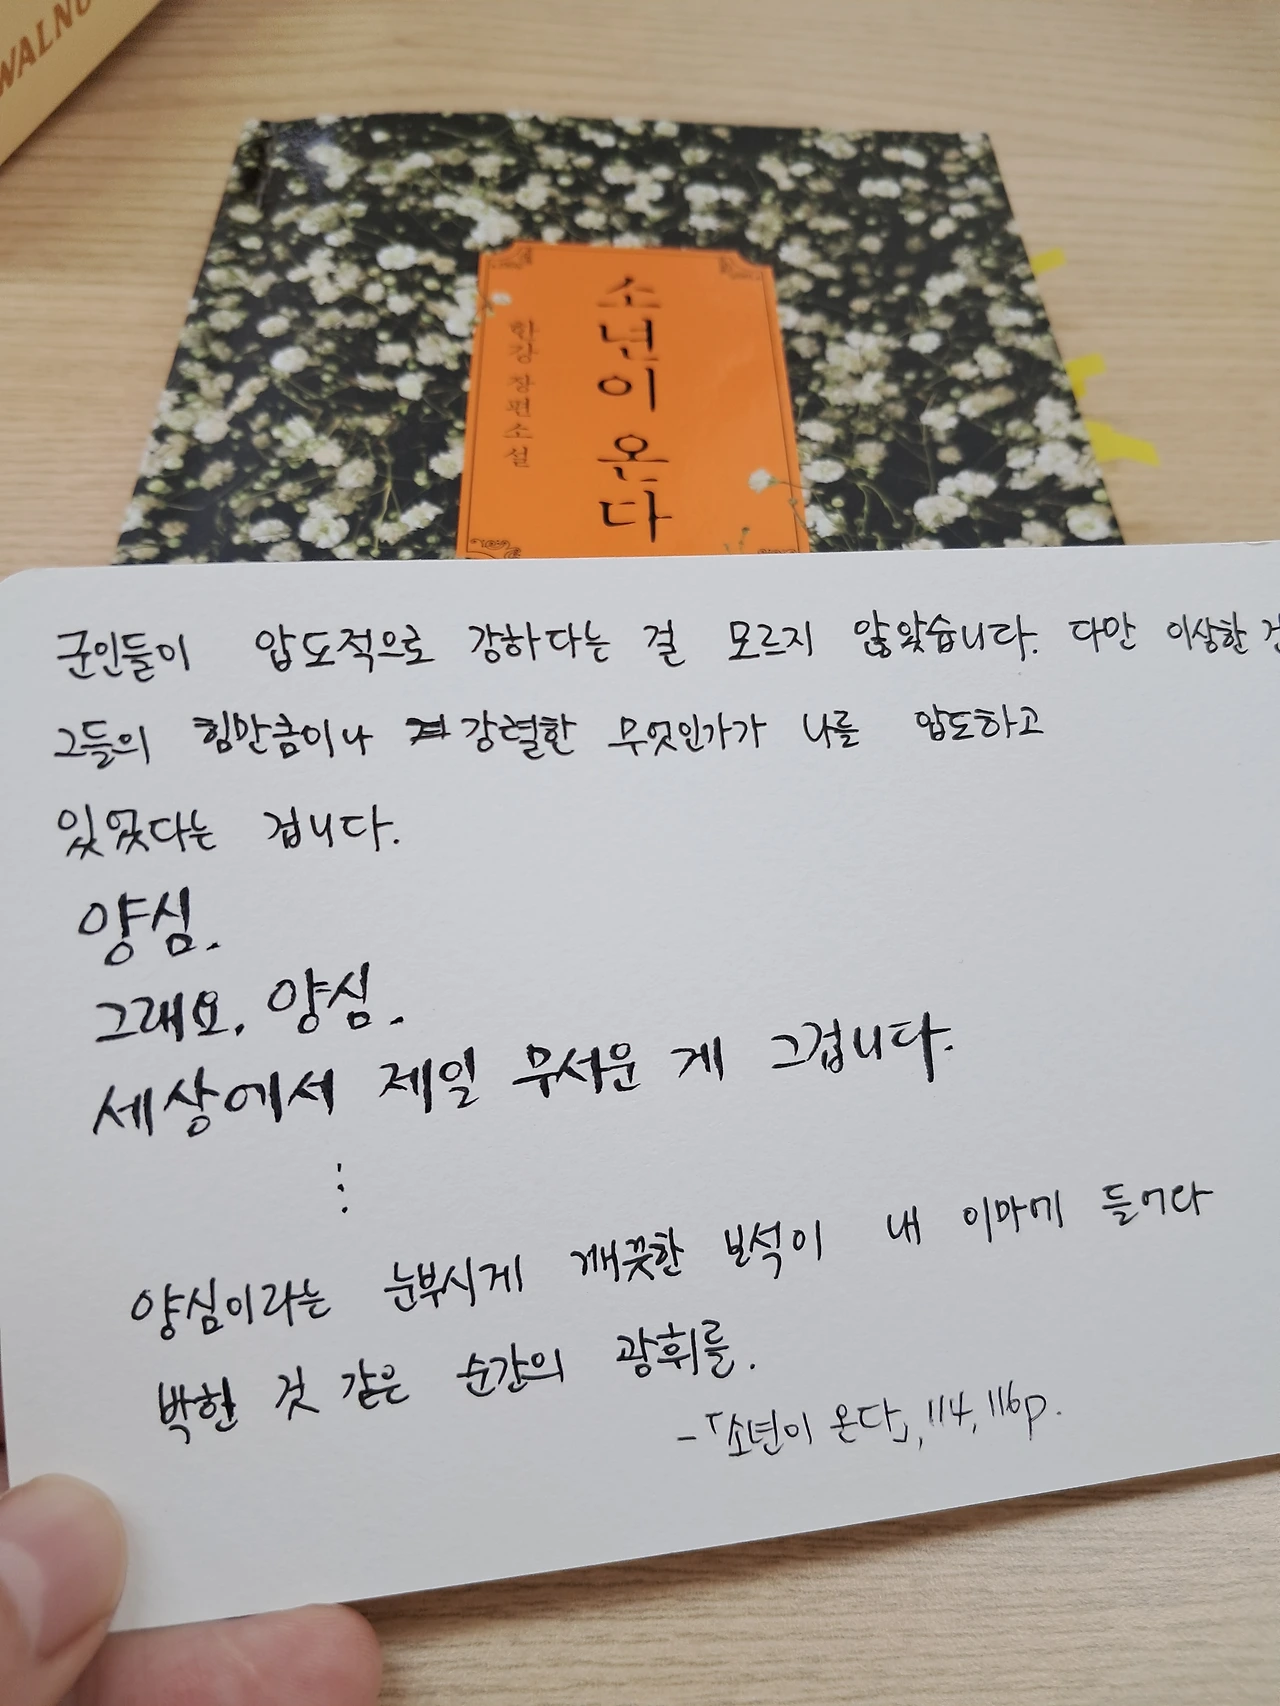 WALNU
소년이 온다
한강 장편소설
군인들이 압도적으로 강하다는 걸 모르지 않았습니다. 다만 이상한 건
그들의 힘만큼이나 강렬한 무엇인가가 나를 압도하고
있었다는 겁니다.
양심.
그래요, 양심.
세상에서 제일 무서운 게 그겁니다.
⋮
양심이라는 눈부시게 깨끗한 보석이 내 이마에 들어와
박힌 것 같은 순간의 광휘를.
-「소년이 온다」, 114, 116p.